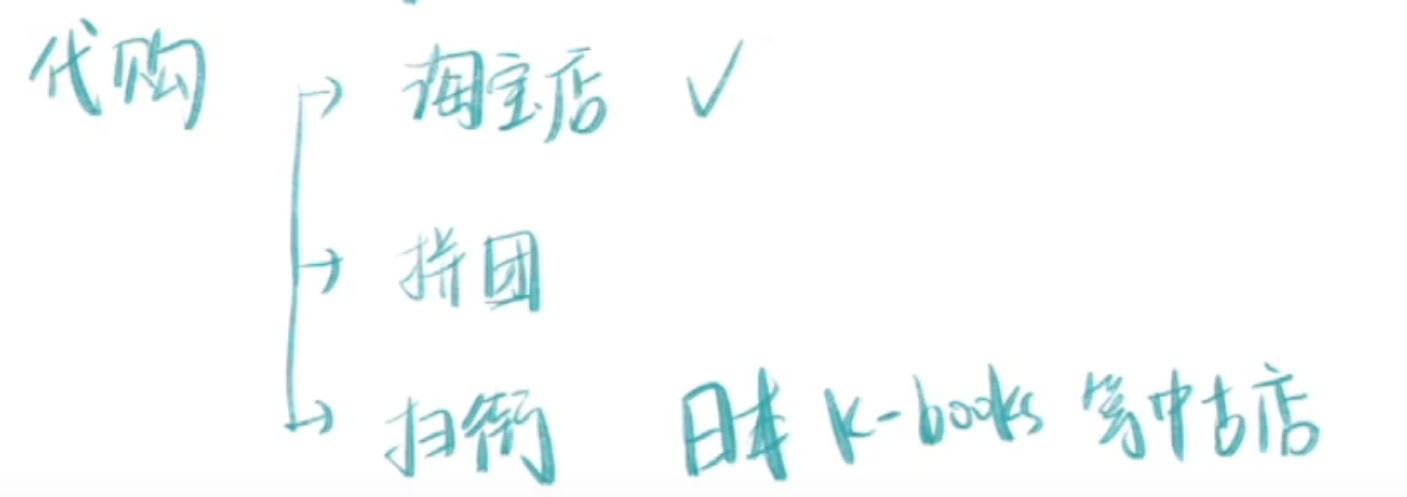 代购 → 淘宝店 ✓
→ 拼团
→ 扫街 日本 K-books 等中古店